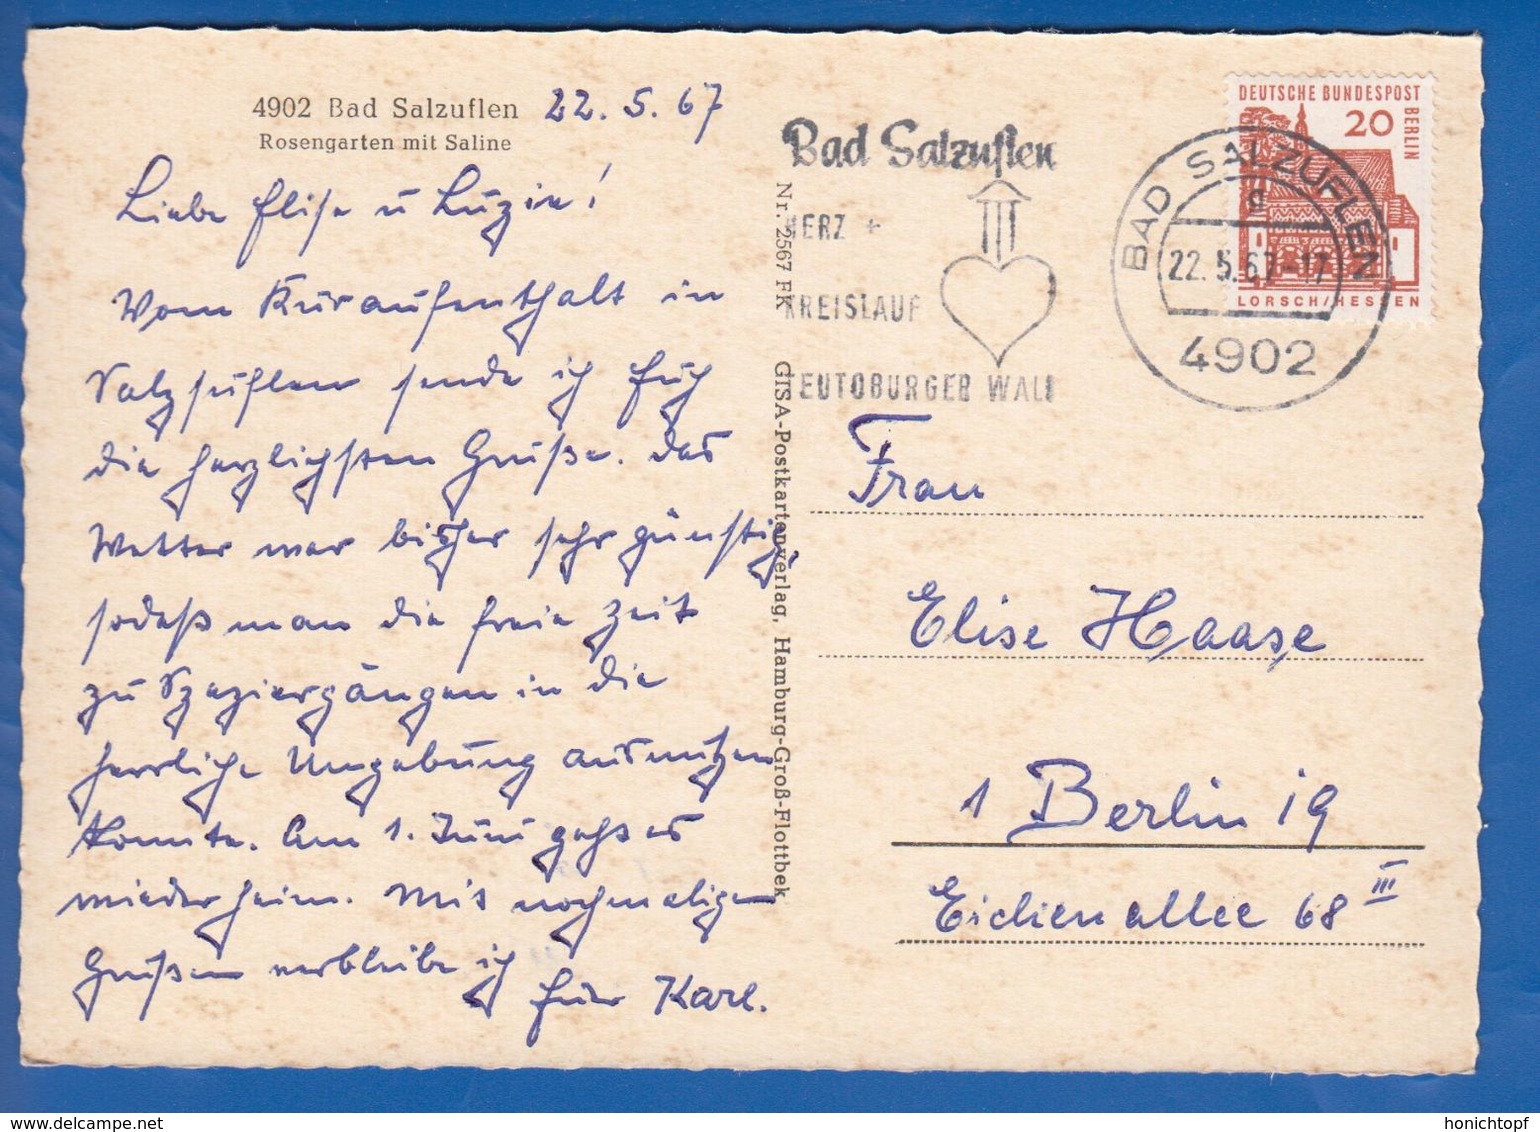 4902 Bad Salzuflen 22. 5. 67
Rosengarten mit Saline
Liebe Elise u Luzie!
Vom Kuraufenthalt in
Salzsuflen sende ich Euch
die herzlichsten Grüße. Das
Wetter war bisher sehr günstig,
sodaß man die freie Zeit
zu Spaziergängen in die
herrliche Umgebung ausnutzen
konnte. Am 1. Juni geht es
wieder heim. Mit nochmaligen
Grüßen verbleibe ich
Euer Karl.
Nr. 2567 FK GISA-Postkartenverlag, Hamburg-Groß-Flottbek
Bad Salzuflen
HERZ +
KREISLAUF
TEUTOBURGER WALD
BAD SALZUFLEN
d
22. 5. 67-17
4902
DEUTSCHE BUNDESPOST
BERLIN
20
LORSCH/HESSEN
Frau
Elise Haase
1 Berlin 19
Eichenallee 68 III
honichtopf